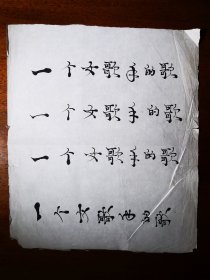 一个女歌手的歌
一个女歌手的歌
一个女歌手的歌
一个女歌手的歌